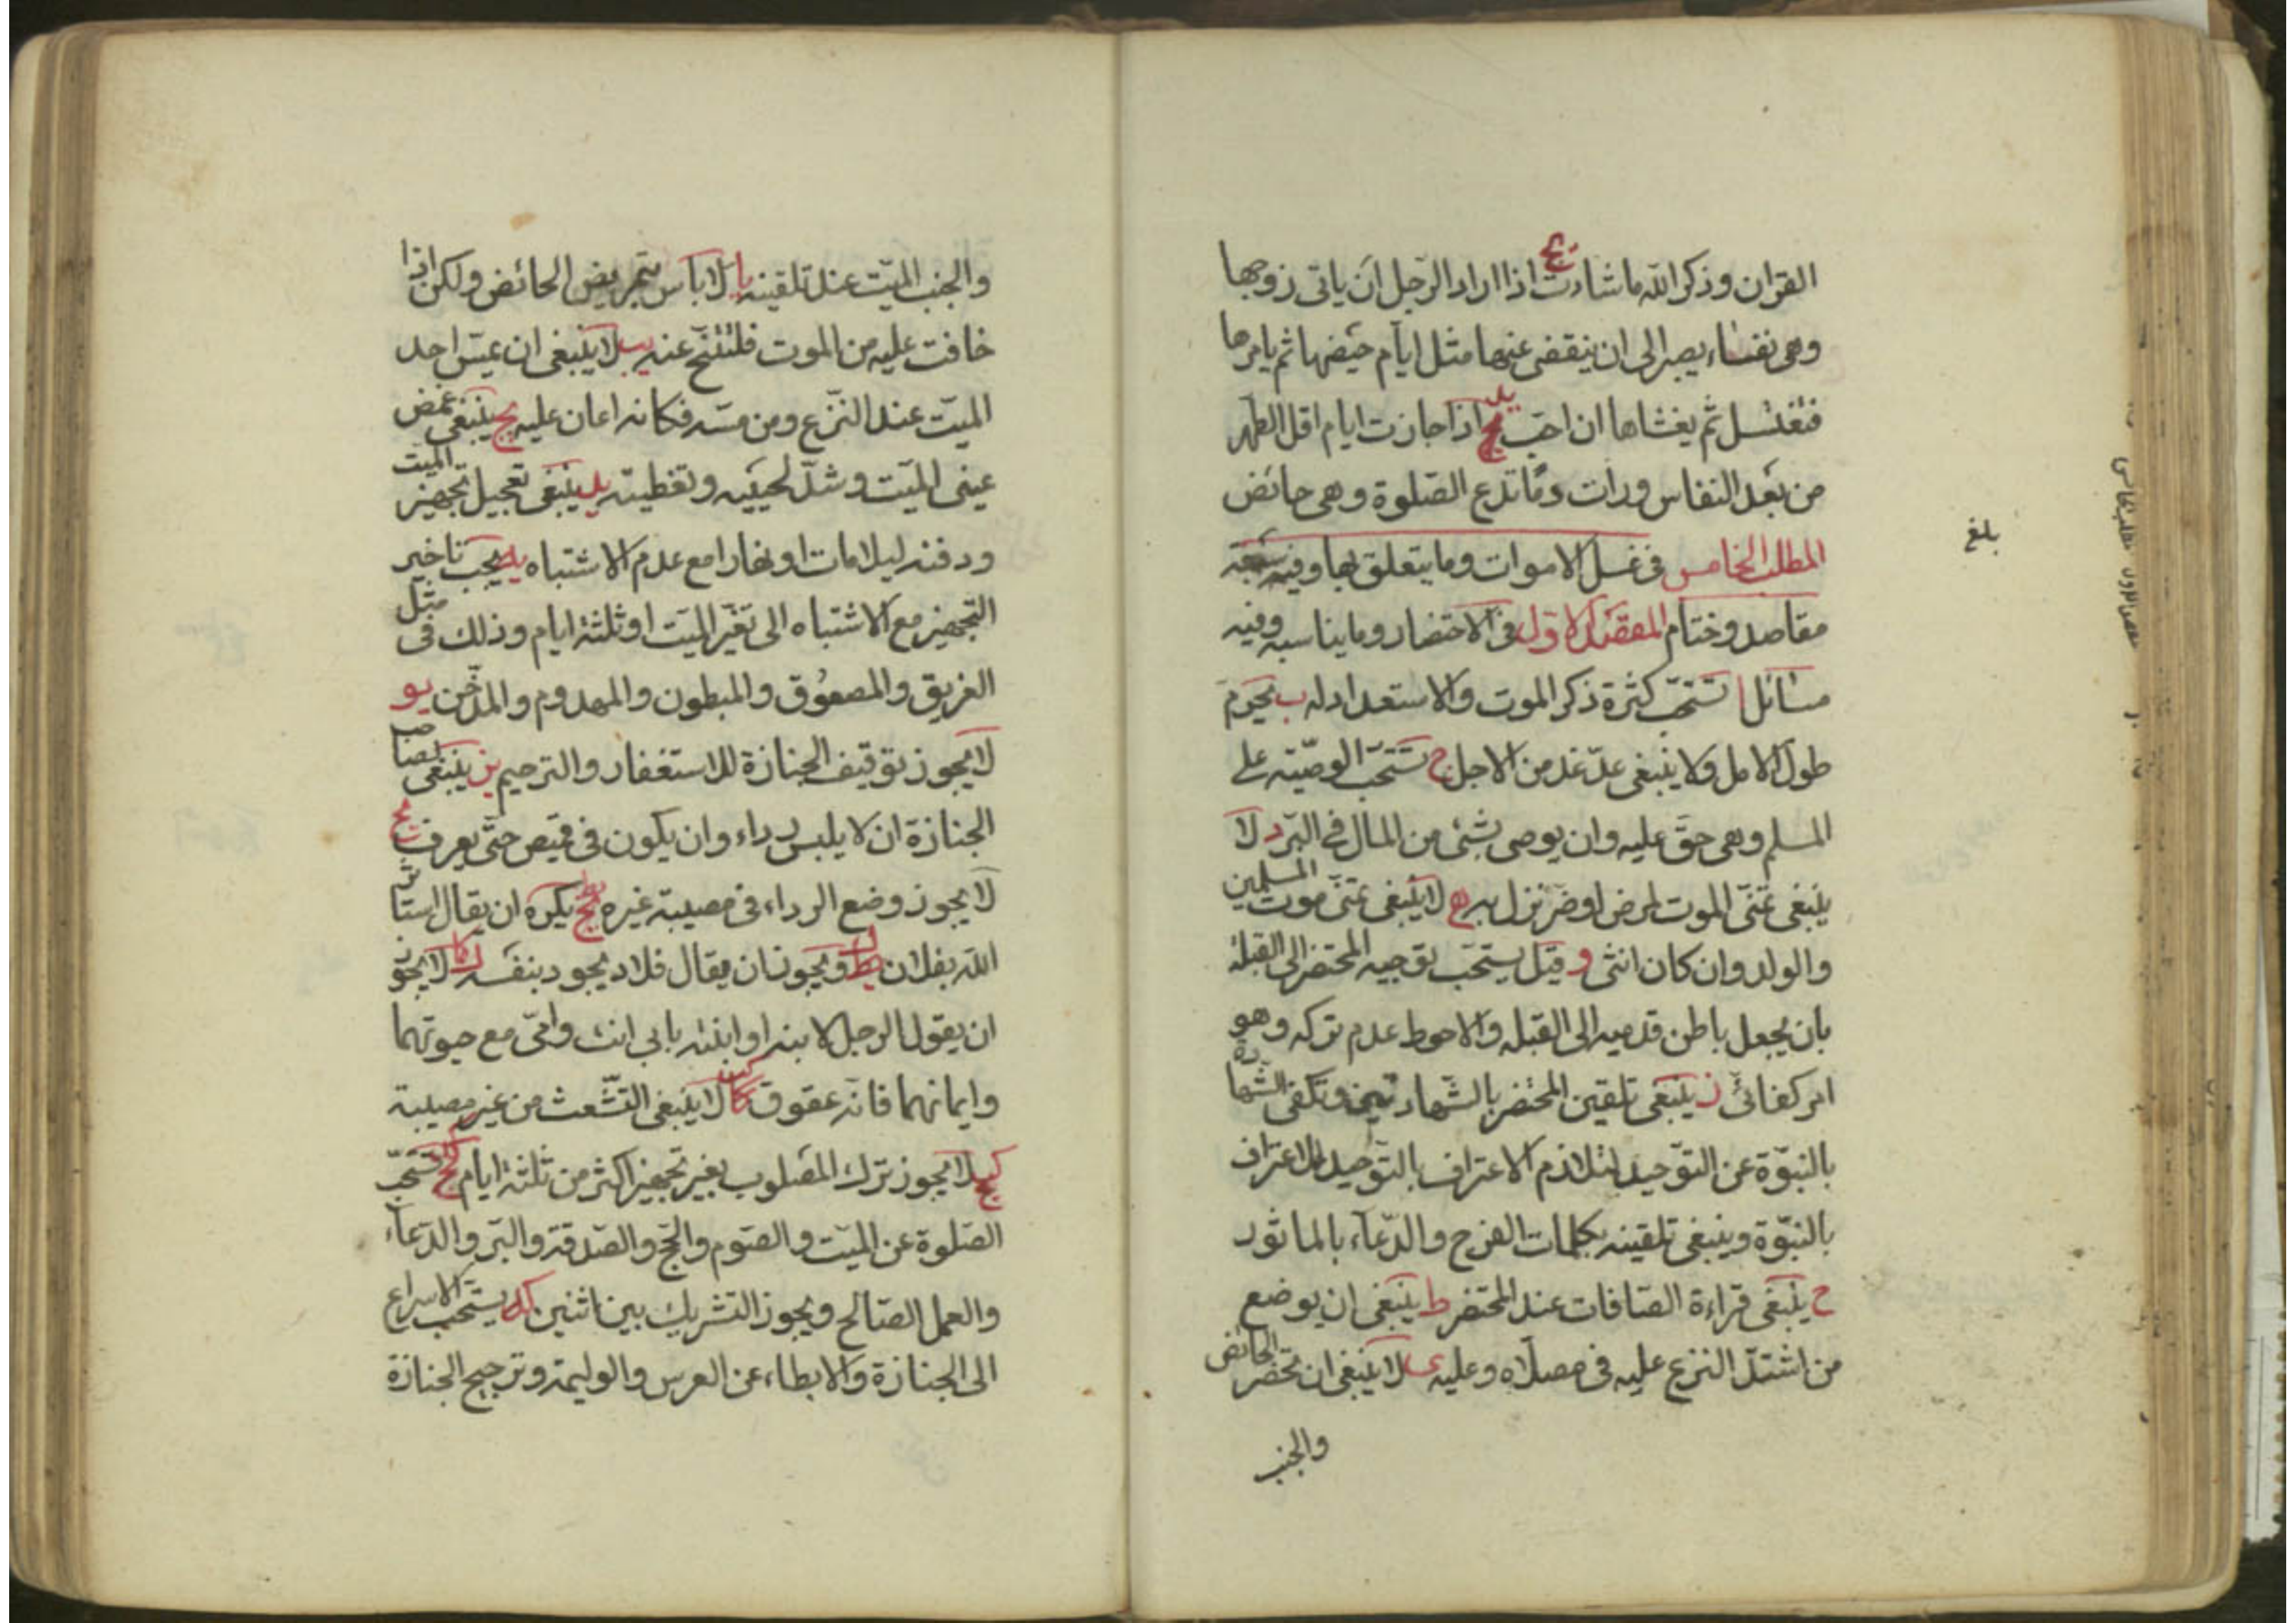 القران وذكر الله ما شاءت يج اذا اراد الرّجل ان ياتى زوجها
وهى نفساء يصبر الى ان ينقضى عنها مثل ايام حيضها ثم يامرها
فتغتسل ثم يغشاها ان احبّ يد اذا جازت ايام اقل الطهر
من بعد النفاس ورات دمًا تدع الصّلوة وهى حائض
المطلب الخامس فى غسل الاموات وما يتعلق بها وفيه سبعة
مقاصد وختام المقصد الاوّل فى الاحتضار وما يناسبه وفيه
مسائل ا تستحبّ كثرة ذكر الموت والاستعداد له ب يحرم
طول الامل ولا ينبغى عدّ غد من الاجل ج تستحبّ الوصيّة على
المسلم وهى حقّ عليه وان يوصى بشئ من المال فى البرّ د لا
ينبغى تمنّى الموت لمرض او ضرّ نزل به ه لا ينبغى تمنّى موت المسلمين
والولد وان كان انثى و قيل يستحبّ توجيه المحتضر الى القبلة
بان يجعل باطن قدميه الى القبله والاحوط عدم تركه وهو
امر كفائىّ ز ينبغى تلقين المحتضر بالشهادتين وتكفى الشهادة
بالنبوّة عن التوحيد لتلازم الاعتراف بالتوحيد للاعتراف
بالنبوّة وينبغى تلقينه بكلمات الفرج والدّعاء بالماثور
ح ينبغى قراءة الصّافات عند المحتضر ط ينبغى ان يوضع
من اشتدّ النزع عليه فى مصلّاه وعليه ى لا ينبغى ان تحضر الحائض
والجنب
بلغ
والجنب الميّت عند تلقينه يا لا باس بتمريض الحائض ولكن اذا
خافت عليه من الموت فلتتنحّ عنه يب لا ينبغى ان يمسّ احد
الميّت عند النّزع ومن مسّه فكانه اعان عليه يج ينبغى غمض
عينى الميّت وشدّ لحييه وتغطيته يد ينبغى تعجيل تجهيز الميت
ودفنه ليلا مات او نهارا مع عدم الاشتباه يه يجب تاخير
التّجهيز مع الاشتباه الى تغيّر الميّت او ثلثة ايام وذلك فى مثل
الغريق والمصعوق والمبطون والمهدوم والمدخّن يو
لا يجوز توقيف الجنازة للاستغفار والترحيم يز ينبغى لصاحب
الجنازة ان لا يلبس رداء وان يكون فى قميص حتّى يعرف يح
لا يجوز وضع الرداء فى مصيبة غيره يط يكره ان يقال استاثر
الله بفلان ك ويجوز ان يقال فلان يجود بنفسه كا لا يجوز
ان يقول الرجل لابنه او ابنته بابى انت وامّى مع حيوتهما
وايمانهما فانّه عقوق كب لا ينبغى التشّعث من غير مصيبة
كج لا يجوز ترك المصلوب بغير تجهيز اكثر من ثلثة ايام كد تستحبّ
الصّلوة عن الميّت والصّوم والحجّ والصّدقة والبرّ والدّعاء
والعمل الصّالح ويجوز التشريك بين اثنين كه يستحب الاسراع
الى الجنازة والابطاء عن العرس والوليمة وترجيح الجنازة